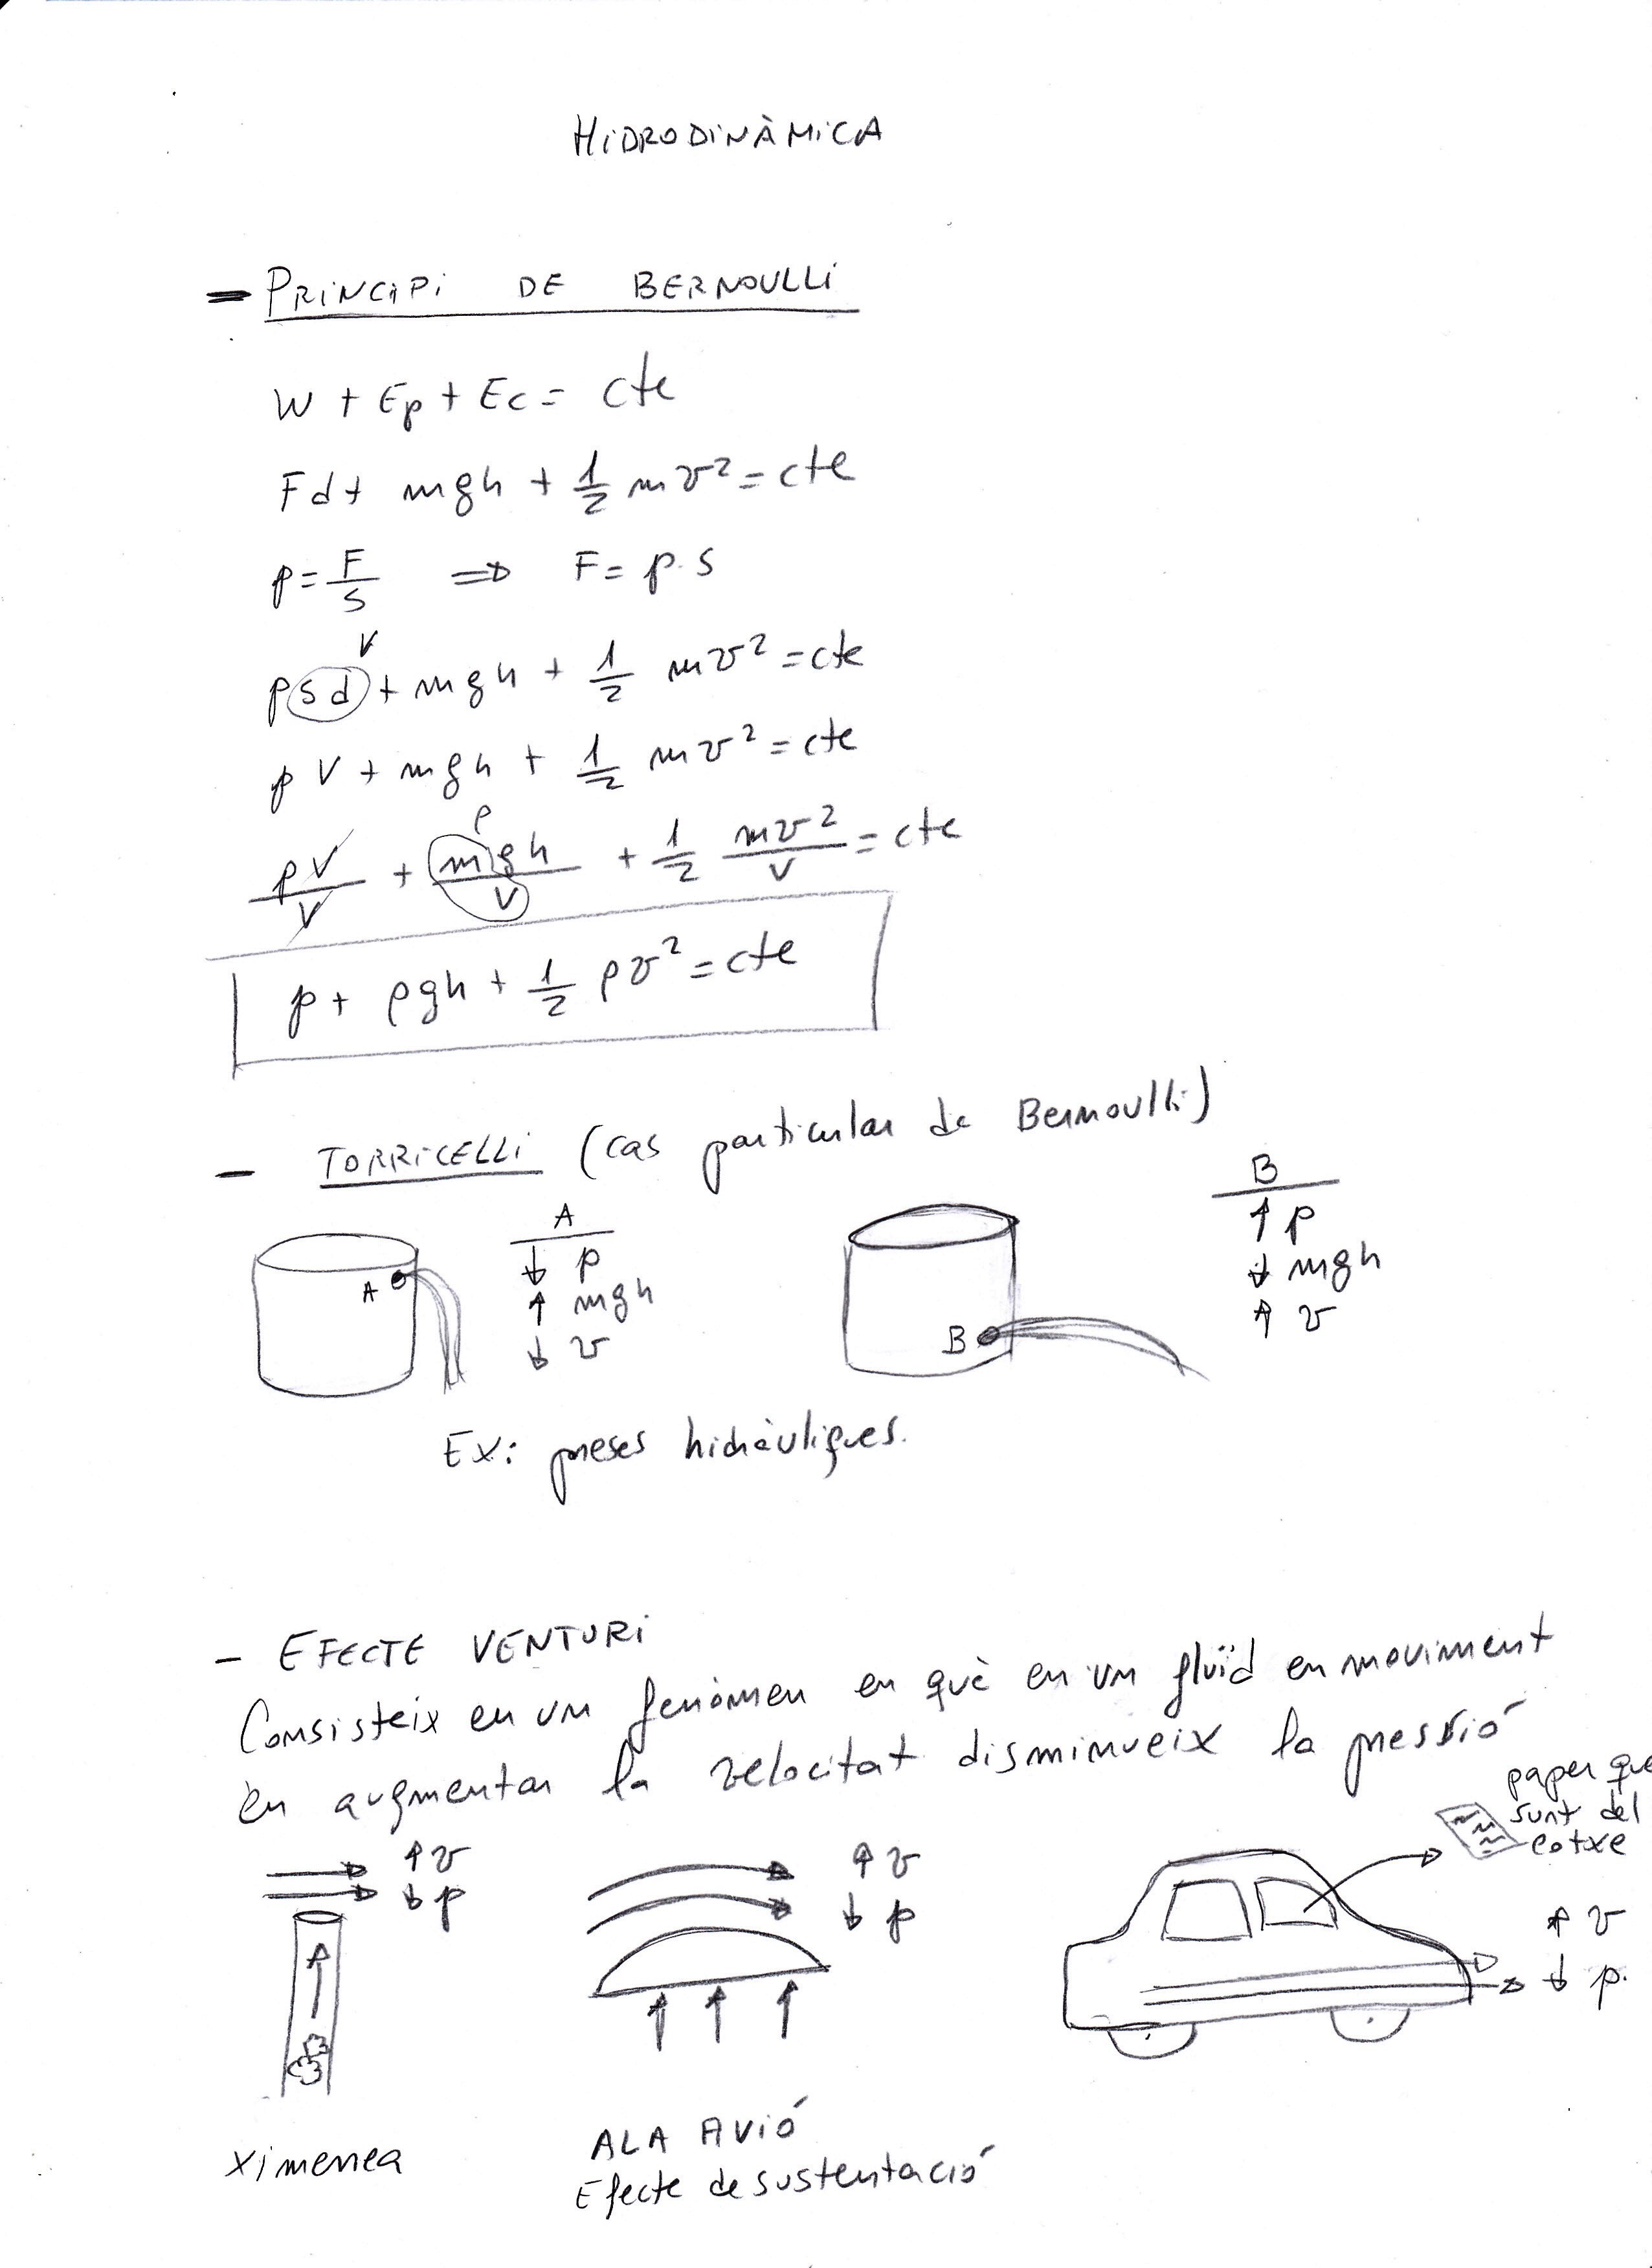 HIDRODINÀMICA
- PRINCIPI DE BERNOULLI
W + Ep + Ec = cte
Fd + mgh + 1/2 mv² = cte
p = F/S ⇒ F = p·S
V
psd + mgh + 1/2 mv² = cte
pV + mgh + 1/2 mv² = cte
ρ
pV/V + mgh/V + 1/2 mv²/V = cte
p + ρgh + 1/2 ρv² = cte
- TORRICELLI (cas particular de Bernoulli)
A
↓ p
↑ mgh
↓ v
A
B
↑ p
↓ mgh
↑ v
B
Ex: preses hidràuliques.
- EFECTE VENTURI
Consisteix en un fenòmen en què en un fluïd en moviment
en augmentar la velocitat disminueix la pressió
paper que
surt del
cotxe
↑ v
↓ p
↑ v
↓ p
↑ v
↓ p.
Ximenea
ALA AVIÓ
Efecte de sustentació